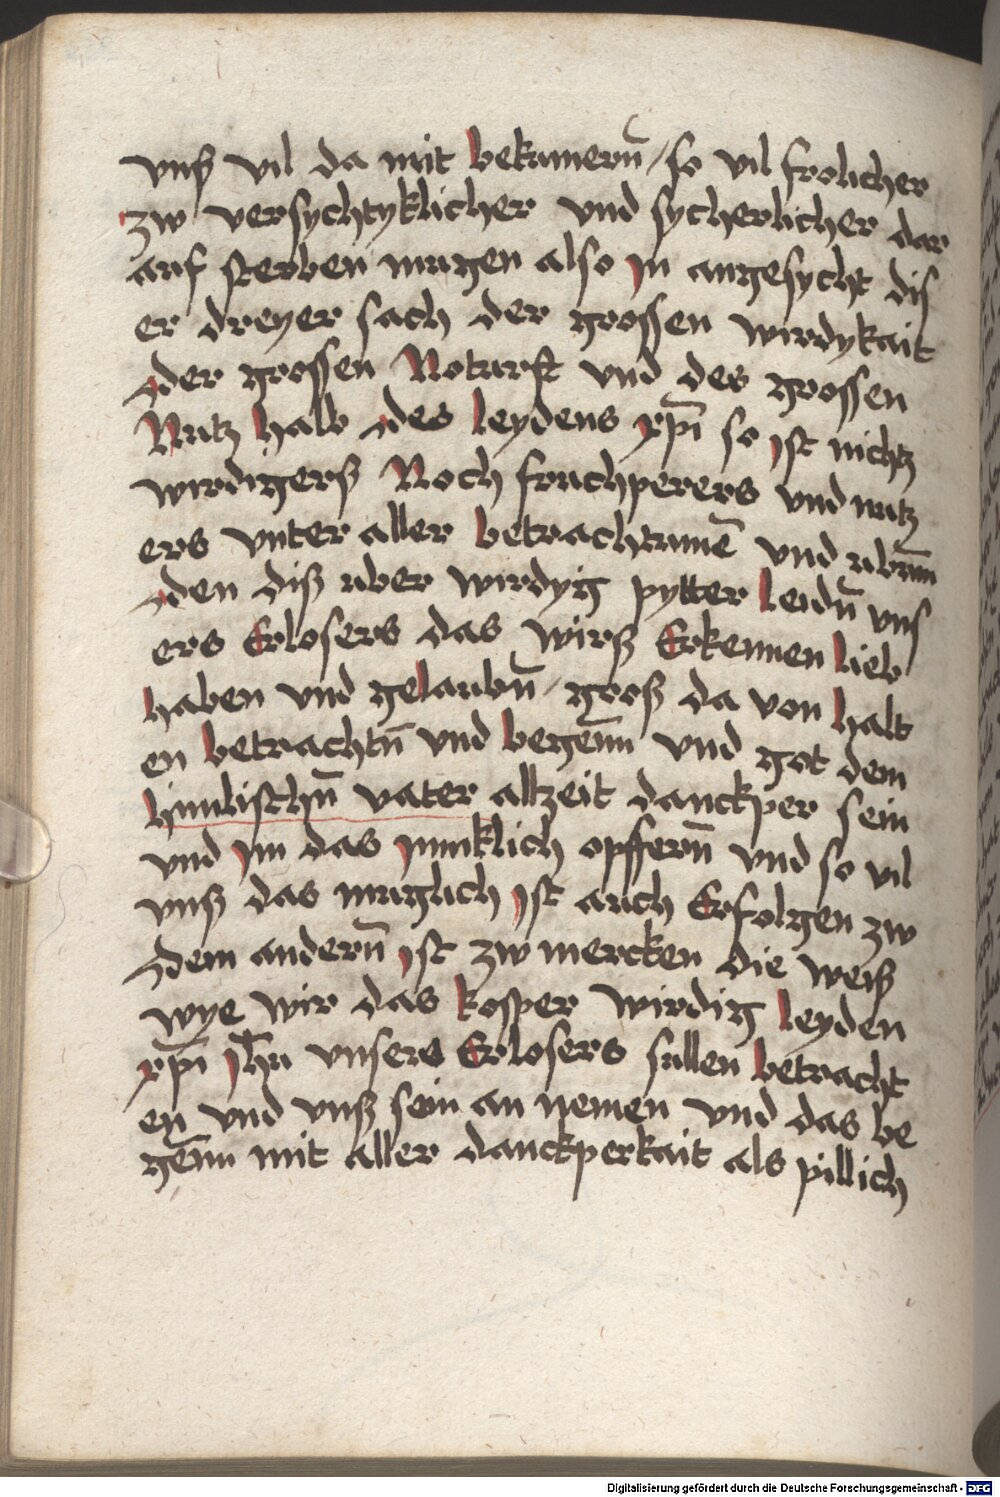 vnß vil da mit bekumern̄ / so vil frolicher
zw versychtyklicher vnd sycherlicher dar
auf sterben mugen also jn angesycht dis
er dreyer sach der grossen wirdykait
der grossen Noturft vnd des grossen
Nutz halb des leydens xp̄i so jst nichtz
wirdigers Noch fruchperers vnd nutz
ers vnter aller betrachtunē vnd
den diß uber wirdyg pytter leidn̄ vns
ers Erlosers das wirß Erkennen lieb
haben vnd gelaubn̄ / groß da von halt
en betrachtn̄ vnd begenn̄ vnd got dem
himlischn̄ vater allzeit danckper sein
vnd jm das jnniklich opffern̄ vnd so vil
vnß das muglich jst auch Erfolgen zw
dem andern̄ jst zw mercken die weiß
wye wir das kosper wirdig leyden
xp̄i jh̄u vnsers Erlosers sullen betracht
en vnd vnß sein an nemen vnd das be
genn̄ mit aller danckperkait als pillich
Digitalisierung gefördert durch die Deutsche Forschungsgemeinschaft - DFG